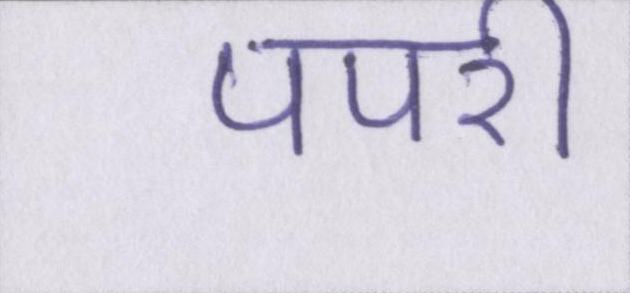 पपरी